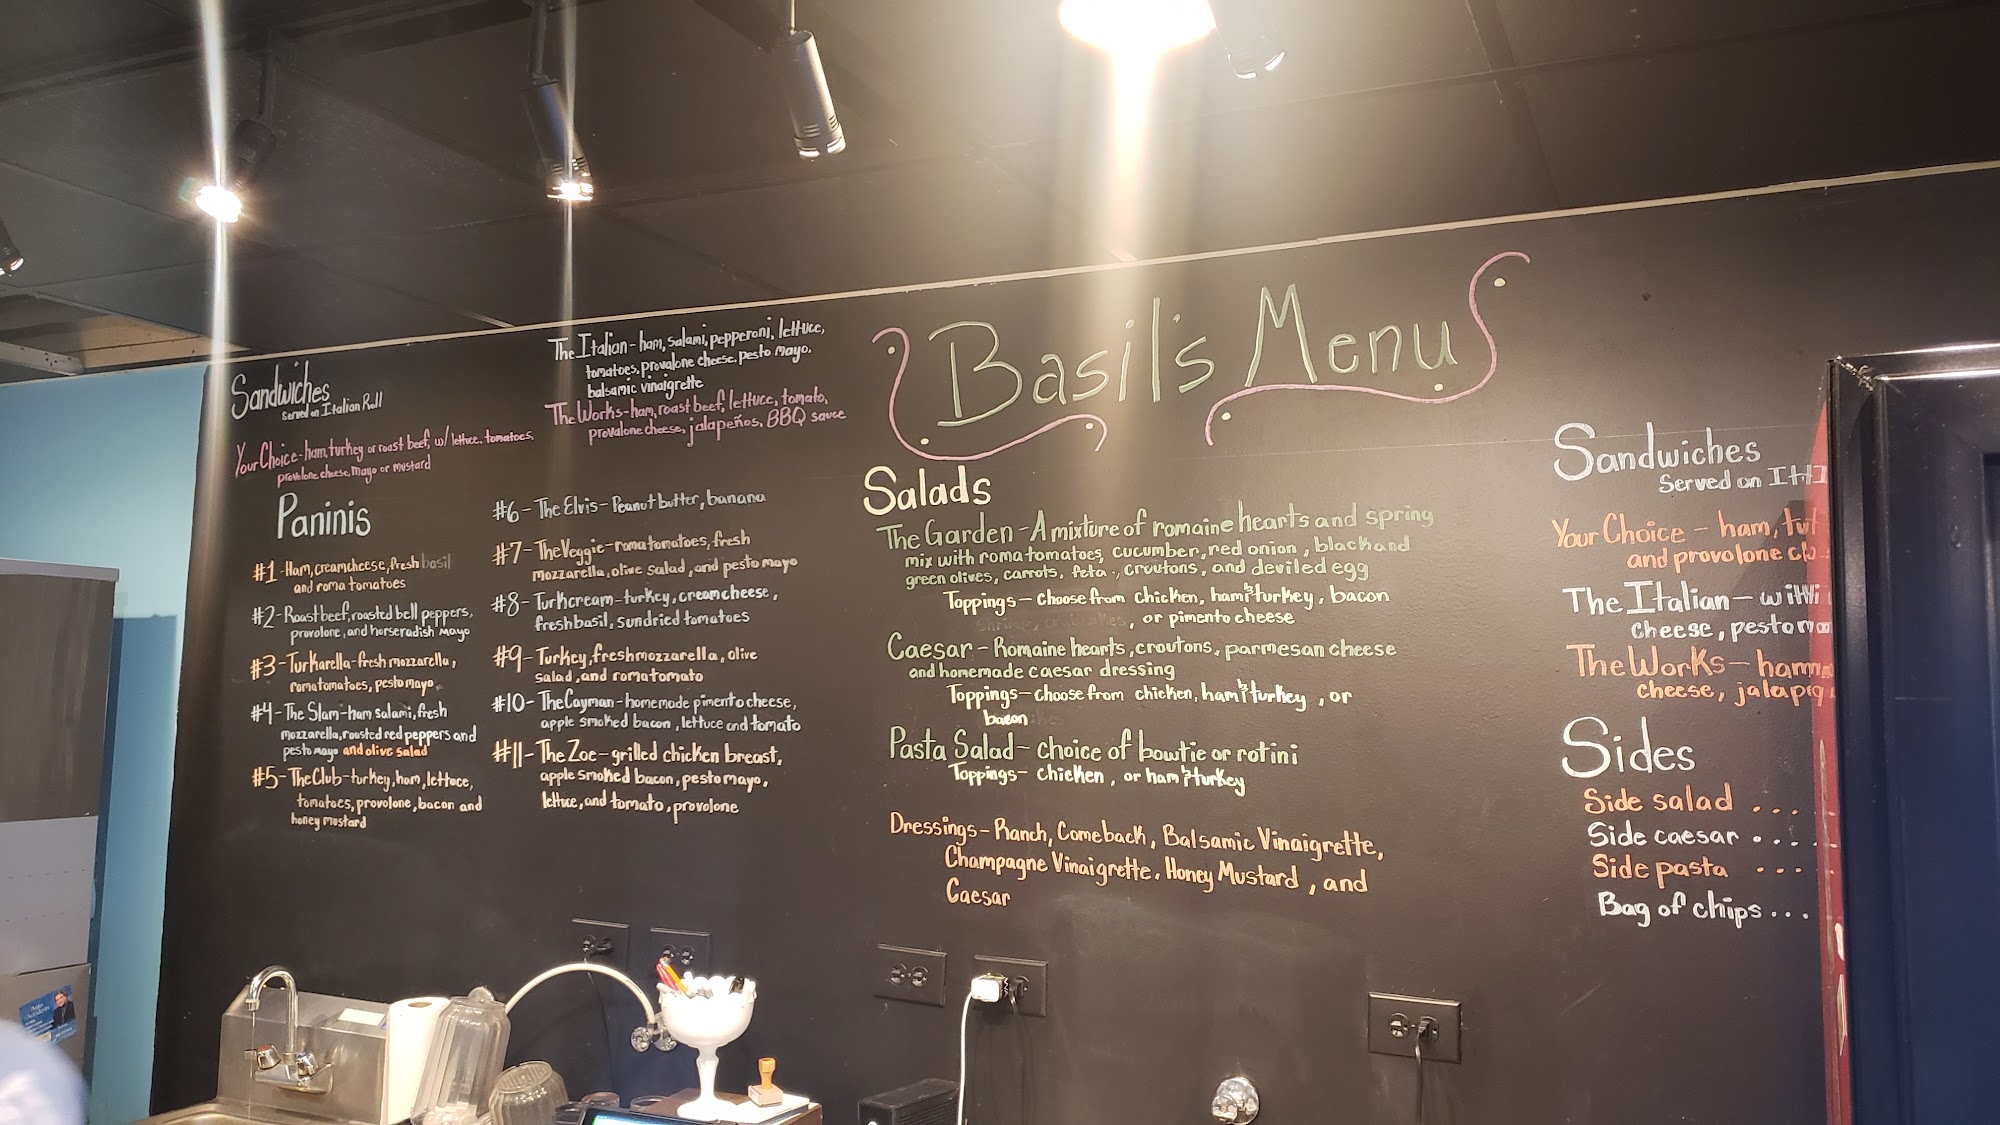 Basil's Menu
Sandwiches
Served on Italian Roll
Your Choice - ham, turkey or roast beef, w/ lettuce, tomatoes,
provolone cheese, mayo or mustard
The Italian - ham, salami, pepperoni, lettuce,
tomatoes, provolone cheese, pesto mayo,
balsamic vinaigrette
The Works - ham, roast beef, lettuce, tomato,
provalone cheese, jalapeños, BBQ sauce
Paninis
#1 - Ham, cream cheese, fresh basil
and roma tomatoes
#2 - Roast beef, roasted bell peppers,
provolone, and horseradish mayo
#3 - Turkarella - fresh mozzarella,
roma tomatoes, pesto mayo
#4 - The Slam - ham salami, fresh
mozzarella, roasted red peppers and
pesto mayo and olive salad
#5 - The Club - turkey, ham, lettuce,
tomatoes, provolone, bacon and
honey mustard
#6 - The Elvis - Peanut butter, banana
#7 - The Veggie - roma tomatoes, fresh
mozzarella, olive salad, and pesto mayo
#8 - Turkcream - turkey, cream cheese,
fresh basil, sundried tomatoes
#9 - Turkey, fresh mozzarella, olive
salad, and roma tomato
#10 - The Cayman - homemade pimento cheese,
apple smoked bacon, lettuce and tomato
#11 - The Zoe - grilled chicken breast,
apple smoked bacon, pesto mayo,
lettuce, and tomato, provolone
Salads
The Garden - A mixture of romaine hearts and spring
mix with roma tomatoes, cucumber, red onion, black and
green olives, carrots, feta, croutons, and deviled egg
Toppings - choose from chicken, ham & turkey, bacon
, or pimento cheese
Caesar - Romaine hearts, croutons, parmesan cheese
and homemade caesar dressing
Toppings - choose from chicken, ham & turkey, or
bacon
Pasta Salad - choice of bowtie or rotini
Toppings - chicken, or ham & turkey
Dressings - Ranch, Comeback, Balsamic Vinaigrette,
Champagne Vinaigrette, Honey Mustard, and
Caesar
Sandwiches
Served on
Your Choice - ham,
and provolone
The Italian -
cheese, pesto
The Works - ham
cheese,
Sides
Side salad ...
Side caesar ....
Side pasta ...
Bag of chips ...